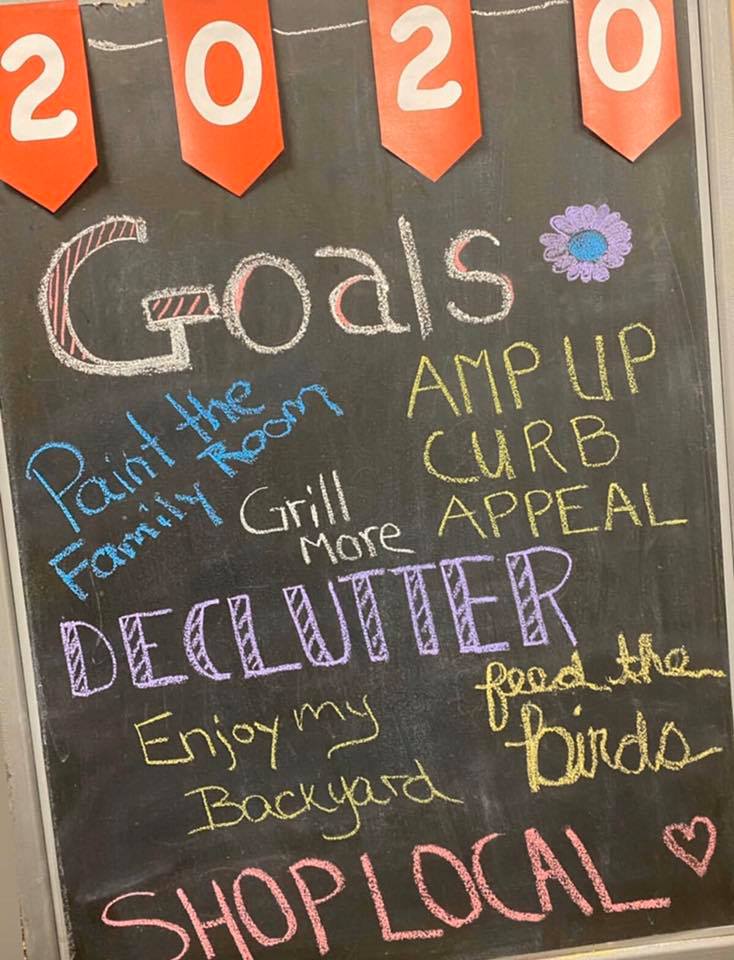 2020
Goals
Paint the
Family Room
AMP UP
CURB
APPEAL
Grill
More
DECLUTTER
Enjoy my
Backyard
feed the
birds
SHOP LOCAL